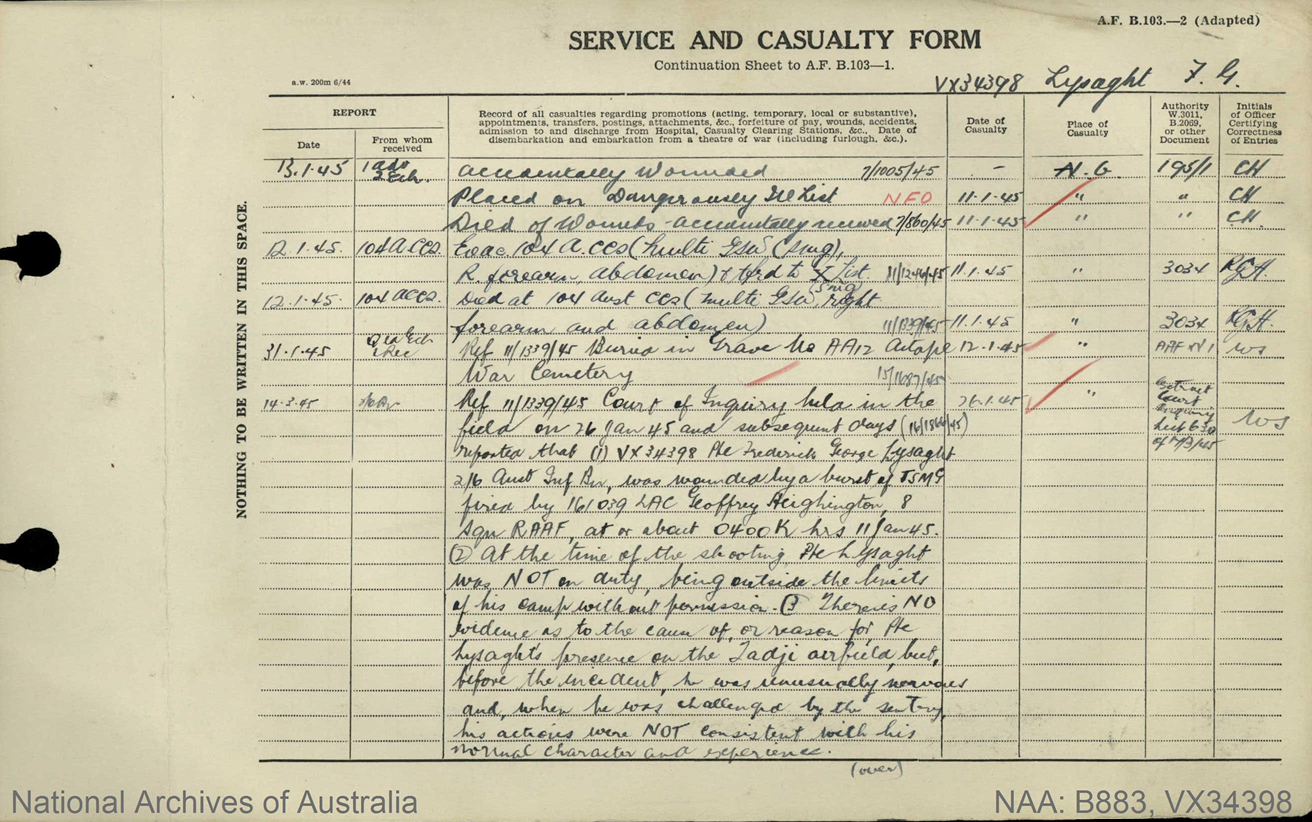 A.F. B.103.—2 (Adapted)
SERVICE AND CASUALTY FORM
Continuation Sheet to A.F. B.103—1.
a.w. 200m 6/44
VX34398 Lysaght F. G.
NOTHING TO BE WRITTEN IN THIS SPACE.
REPORT
Date
From whom received
Record of all casualties regarding promotions (acting, temporary, local or substantive),
appointments, transfers, postings, attachments, &c., forfeiture of pay, wounds, accidents,
admission to and discharge from Hospital, Casualty Clearing Stations, &c., Date of
disembarkation and embarkation from a theatre of war (including furlough, &c.).
Date of Casualty
Place of Casualty
Authority W.3011, B.2069, or other Document
Initials of Officer Certifying Correctness of Entries
13.1.45 Accidentally Wounded 7/1005/45 - N.G. 195/1 CH
Placed on Dangerously Ill List NFO 11.1.45 " " CH
Died of Wounds accidentally received 7/860/45 11.1.45 " " CH
12.1.45. 104 A.CCS. Evac 104 A.CCS (Multi GSW (smg),
R. forearm, abdomen) & tfrd to X List. 11/1246/45 11.1.45 " 3034 KGH.
12.1.45. 104 ACCS. Died at 104 Aust CCS (multi GSW smg right
forearm and abdomen) 11/1339/45 11.1.45 " 3034 KGH.
31.1.45 Ref 11/1339/45 Buried in Grave No AA12 Aitape 12.1.45 " WS
War Cemetery 15/1687/45
14.3.45 Ref 11/1339/45 Court of Inquiry held in the 26.1.45 "
field on 26 Jan 45 and subsequent days (16/1866/45) WS
reported that (1) VX34398 Pte Frederick George Lysaght
2/6 Aust Inf Bn, was wounded by a burst of TSMG
fired by 161039 LAC Geoffrey Heighington, 8
Sqn RAAF, at or about 0400K hrs 11 Jan 45.
(2) At the time of the shooting Pte Lysaght
was NOT on duty, being outside the limits
of his camp without permission. (3) There is NO
evidence as to the cause of, or reason for, Pte
Lysaght's presence on the Tadji airfield, but,
before the incident, he was unusually nervous
and, when he was challenged by the sentry,
his actions were NOT consistent with his
normal character and experience.
(over)
National Archives of Australia
NAA: B883, VX34398